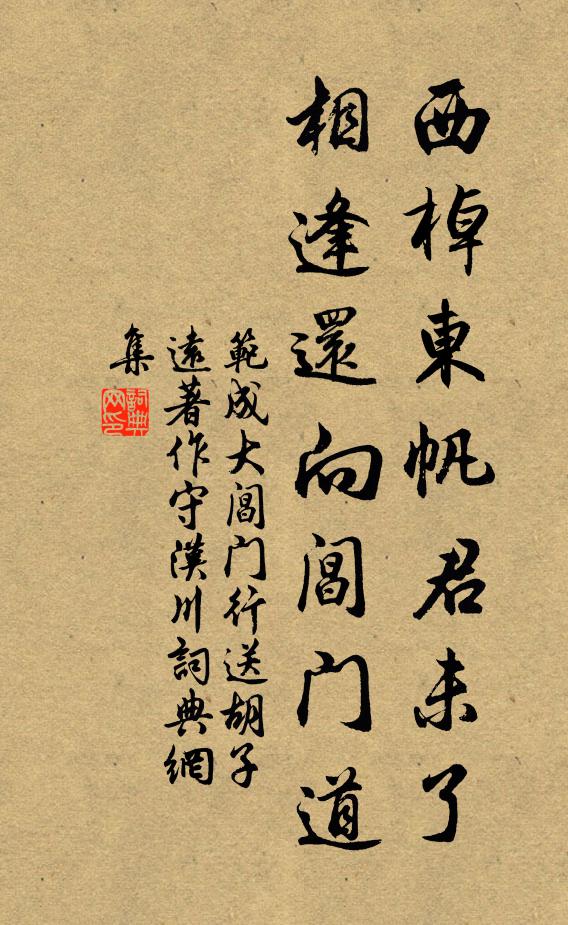 西棹東帆君未了
相逢還向閶门道
範成大閶门行送胡子
遠著作守漢川詞典網
集
詞典
网印